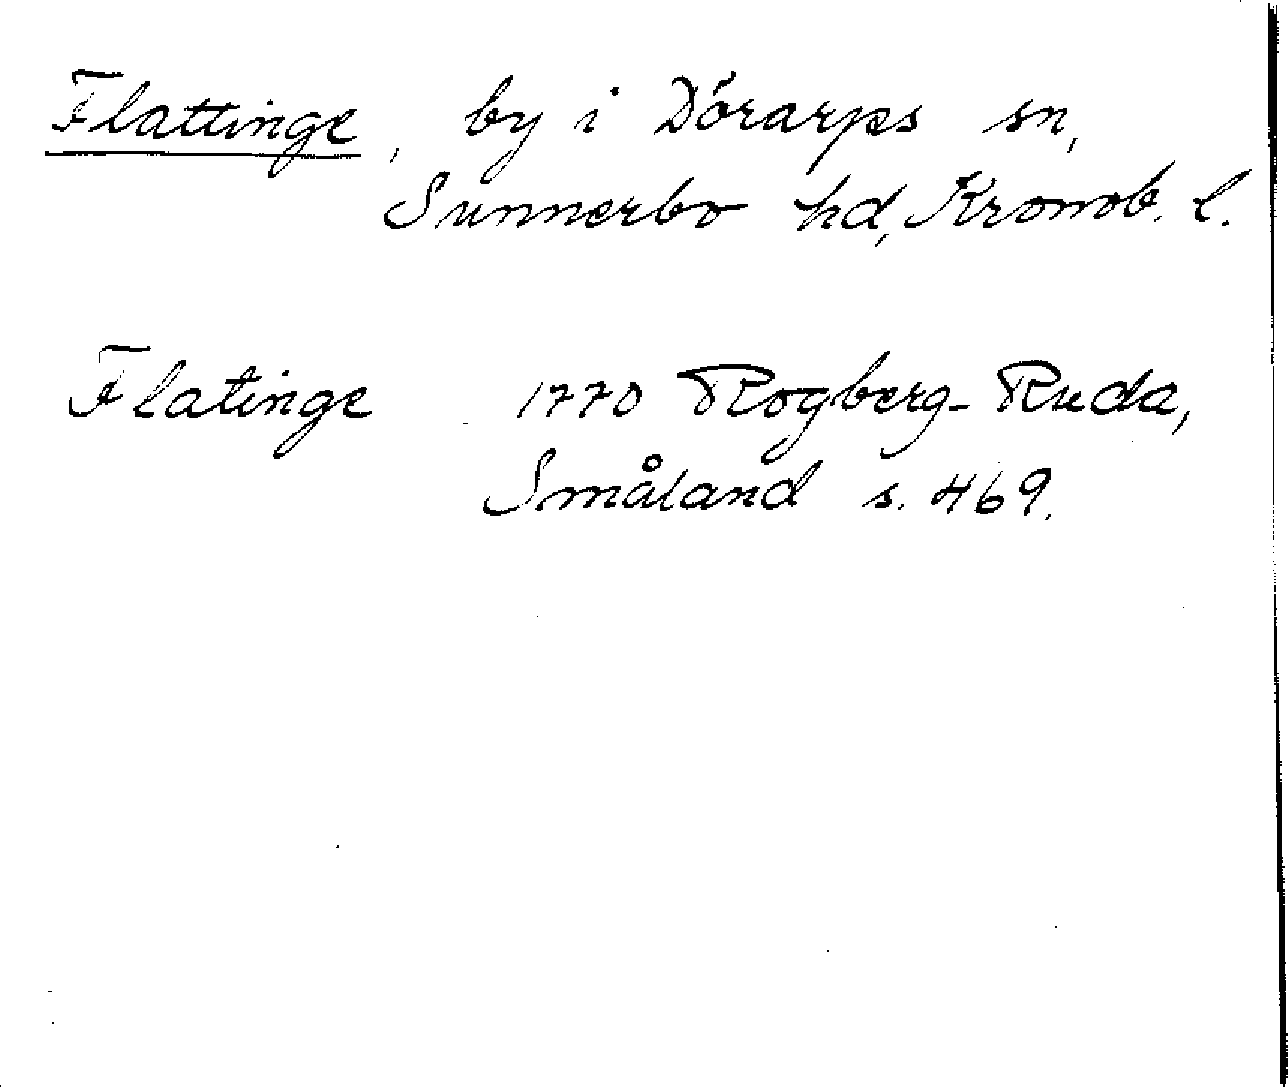 Flattinge, by i Dörarps sn,
Sunnerbo hd, Kronob. l.
Flatinge 1770 Rogberg-Ruda,
Småland s. 469.